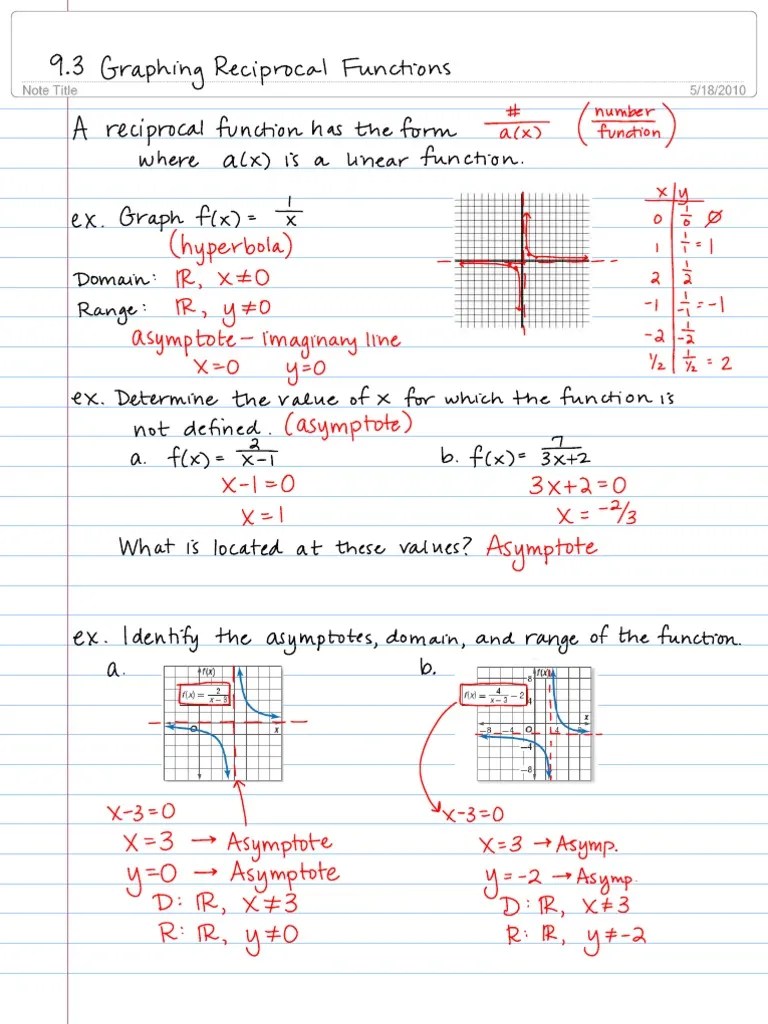 9.3 Graphing Reciprocal Functions
Note Title 5/18/2010
A reciprocal function has the form #/a(x) (number/function)
where a(x) is a linear function.
ex. Graph f(x) = 1/x
(hyperbola)
Domain: ℝ, x≠0
Range: ℝ, y≠0
asymptote – imaginary line
x=0 y=0
x | y
0 | 1/0 ∅
1 | 1/1 = 1
2 | 1/2
-1 | 1/-1 = -1
-2 | 1/-2
1/2 | 1/½ = 2
ex. Determine the value of x for which the function is
not defined. (asymptote)
a. f(x) = 2/x-1 b. f(x) = 7/3x+2
x-1=0 3x+2=0
x=1 x = -2/3
What is located at these values? Asymptote
ex. Identify the asymptotes, domain, and range of the function.
a. b.
f(x)
f(x) = 2/x-3
O x
8 f(x)
f(x) = 4/x-3 - 2 4
x
-8 -4 O 4
-4
-8
x-3=0
x=3 → Asymptote
y=0 → Asymptote
D: ℝ, x≠3
R: ℝ, y≠0
x-3=0
x=3 → Asymp.
y=-2 → Asymp.
D: ℝ, x≠3
R: ℝ, y≠-2